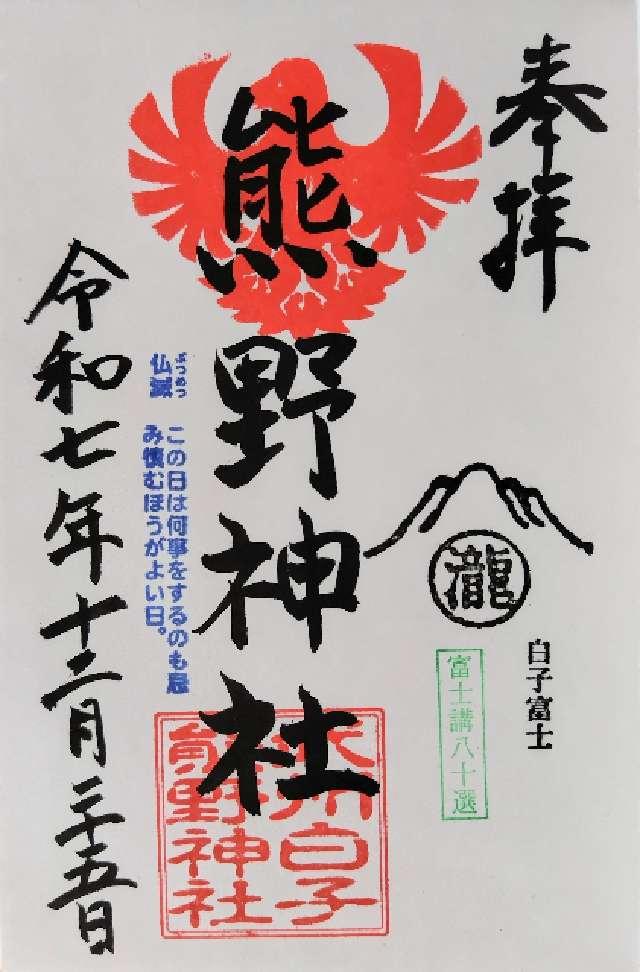 奉拝
瀧
白子富士
富士講八十選
熊野神社
白子
熊野神社
仏滅
ぶつめつ
この日は何事をするのも忌
み慎むほうがよい日。
令和七年十二月二十五日